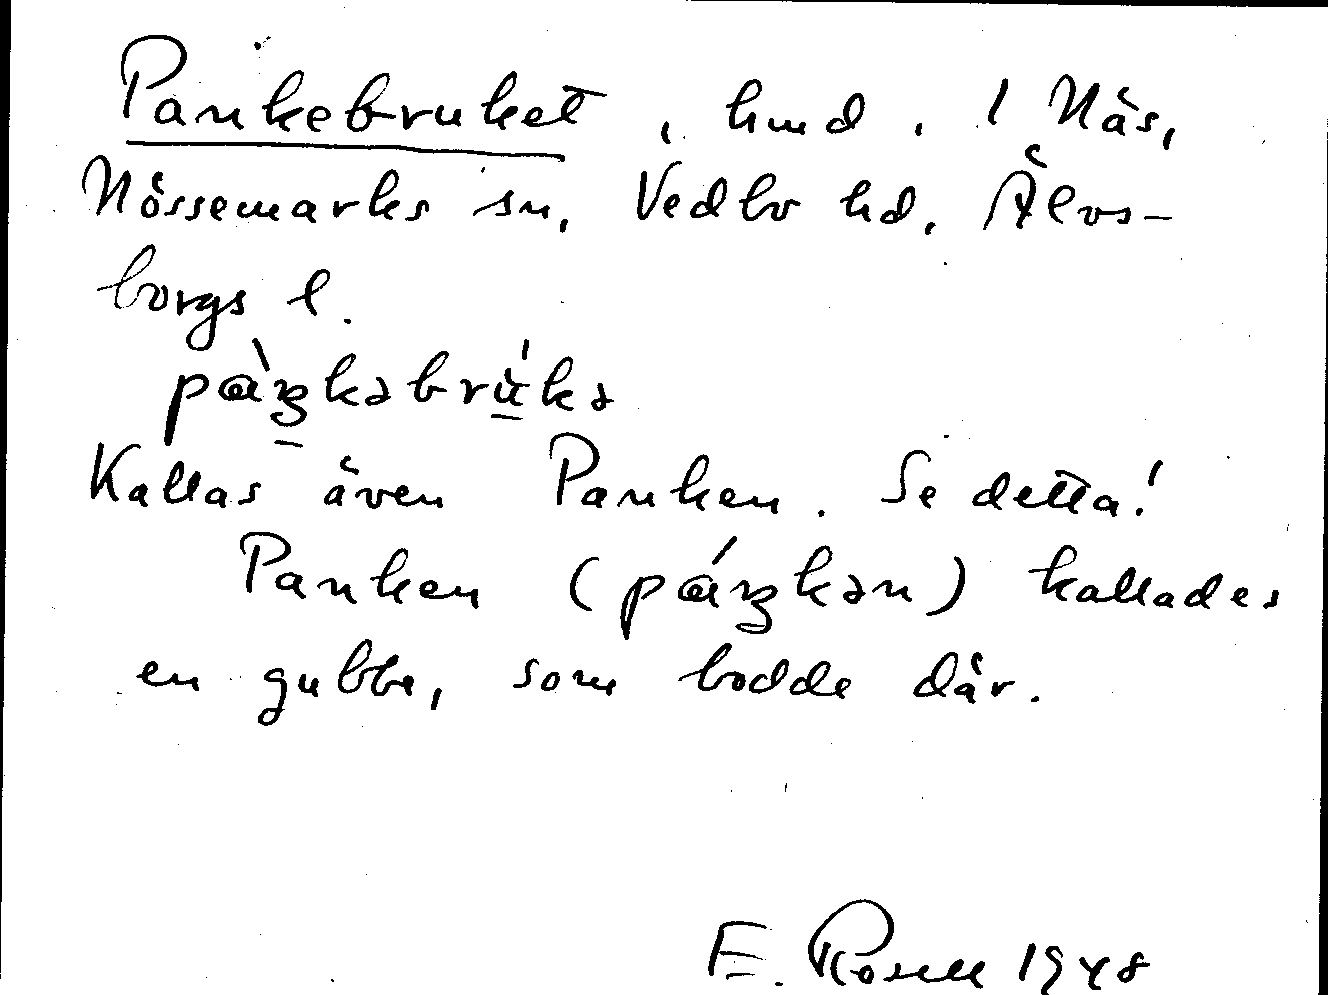 Pankebruket, hmd. 1 Näs,
Nössemarks sn, Vedbo hd. Älvs-
borgs l.
pɑ̀ŋkəbrù̱kə
Kallas även Panken. Se detta!
Panken (pɑ́ŋkən) kallades
en gubbe, som bodde där.
E. Rosell 1948